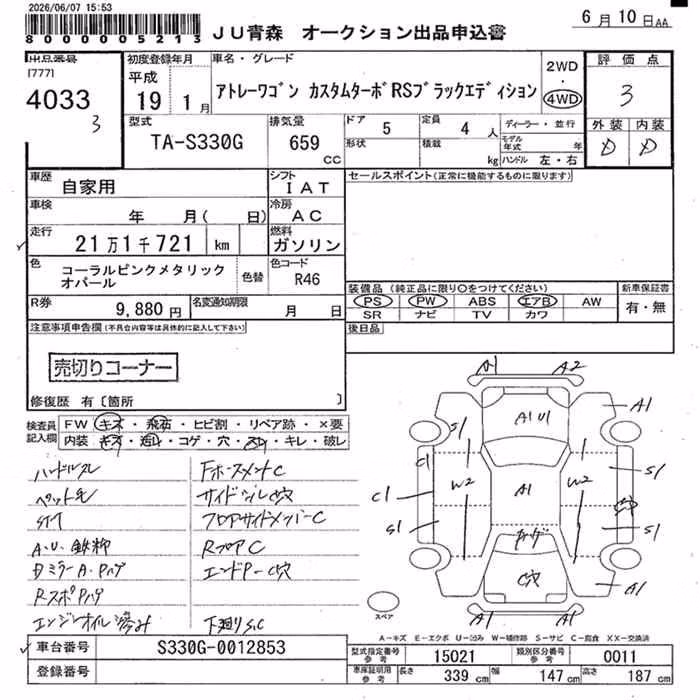 2026/06/07 15:53
8000005213
JU青森 オークション出品申込書
6月10日AA
出品番号
[777]
4033
3
初度登録年月
平成
19 1月
車名・グレード
アトレーワゴン カスタムターボRSブラックエディション
2WD
・
4WD
評価点
3
型式
TA-S330G
排気量
659
CC
ドア 5
定員 4 人
ディーラー・並行
形状
積載 kg
モデル年式 年
ハンドル 左・右
外装 内装
D D
車歴
自家用
シフト
IAT
車検
年 月( 日)
冷房
AC
走行
21万1千721 km
燃料
ガソリン
色
コーラルピンクメタリック
オパール
色替
色コード
R46
R券
9,880 円
名変通知期限
月 日
セールスポイント(正常に機能するものに限ります)
装備品 (純正品に限り○をつけてください)
新車保証書
PS PW ABS エアB AW
SR ナビ TV カワ
有・無
後日品
注意事項申告欄(不具合内容等は具体的に記入して下さい)
売切りコーナー
修復歴 有〔箇所 〕
検査員
記入欄
FW キズ・飛石・ヒビ割・リペア跡・×要
内装 キズ・汚れ・コゲ・穴・スレ・キレ・破レ
ハンドルスレ
ペット毛
A.U.鉄粉
DミラーA.Pハゲ
RスポPハゲ
エンジンオイル滲み
サイドシルC穴
フロアサイドメンバーC
RフロアC
エンドP-C穴
下廻りS.C
A1 A2
A1 U1
A1
S1
C1
W2
A1
W2
S1
C1
S1
S1
C穴
A1
A1
A1 A1
スペア
A-キズ E-エクボ U-凹み W-補修跡 S-サビ C-腐食 XX-交換済
車台番号
S330G-0012853
登録番号
型式指定番号
参考
15021
類別区分番号
参考
0011
車庫証明用
参考
長さ 339 cm 幅 147 cm 高さ 187 cm